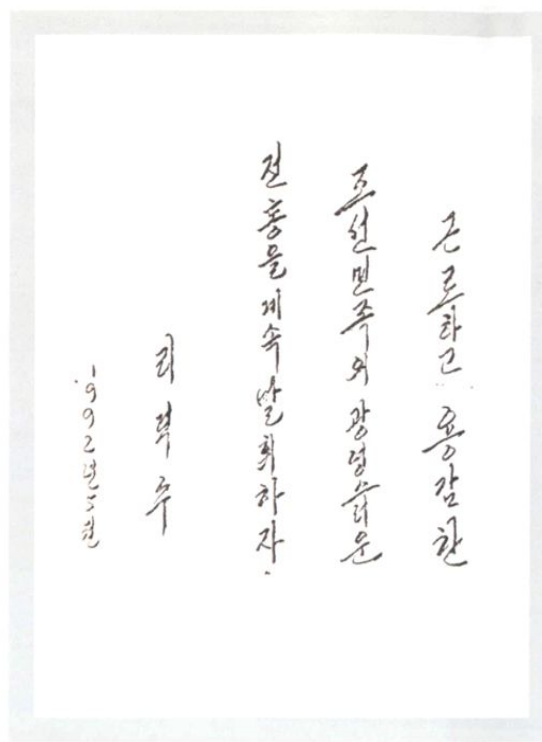 근로하고 용감한
조선민족의 광영스러운
전통을 계속 발휘하자.
리덕수
1992년 5월